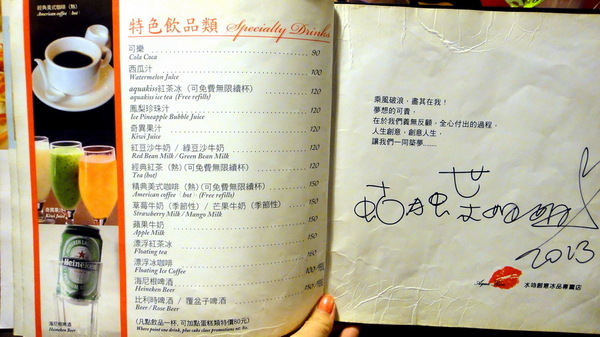 經典美式咖啡（熱）
American coffee（hot）
特色飲品類 Specialty Drinks
可樂 90
Cola Coca
西瓜汁 100
Watermelon Juice
aquakiss紅茶冰（可免費無限續杯） 120
aquakiss ice tea (Free refills)
鳳梨珍珠汁 120
Ice Pineapple Bubble Juice
奇異果汁 120
Kiwi Juice
紅豆沙牛奶 / 綠豆沙牛奶 120
Red Bean Milk / Green Bean Milk
經典紅茶（熱）（可免費無限續杯） 120
Tea (hot)
精典美式咖啡（熱）（可免費無限續杯） 150
American coffee（hot）(Free refills)
草莓牛奶（季節性）/ 芒果牛奶（季節性） 150
Strawberry Milk / Mango Milk
蘋果牛奶 150
Apple Milk
漂浮紅茶冰 150
Floating tea
漂浮冰咖啡 150
Floating Ice Coffee
海尼根啤酒 100/瓶
Heineken Beer
比利時啤酒 / 覆盆子啤酒 150/瓶
Beer / Rose Beer
（凡點飲品一杯, 可加點蛋糕類特價80元）
奇異果汁
Kiwi Juice
Heineken
海尼根啤酒
Heineken Beer
乘風破浪，盡其在我！
夢想的可貴，
在於我們義無反顧，全心付出的過程，
人生創意，創意人生，
讓我們一同築夢.......
2013
Aqua Kiss 水吻創意冰品專賣店